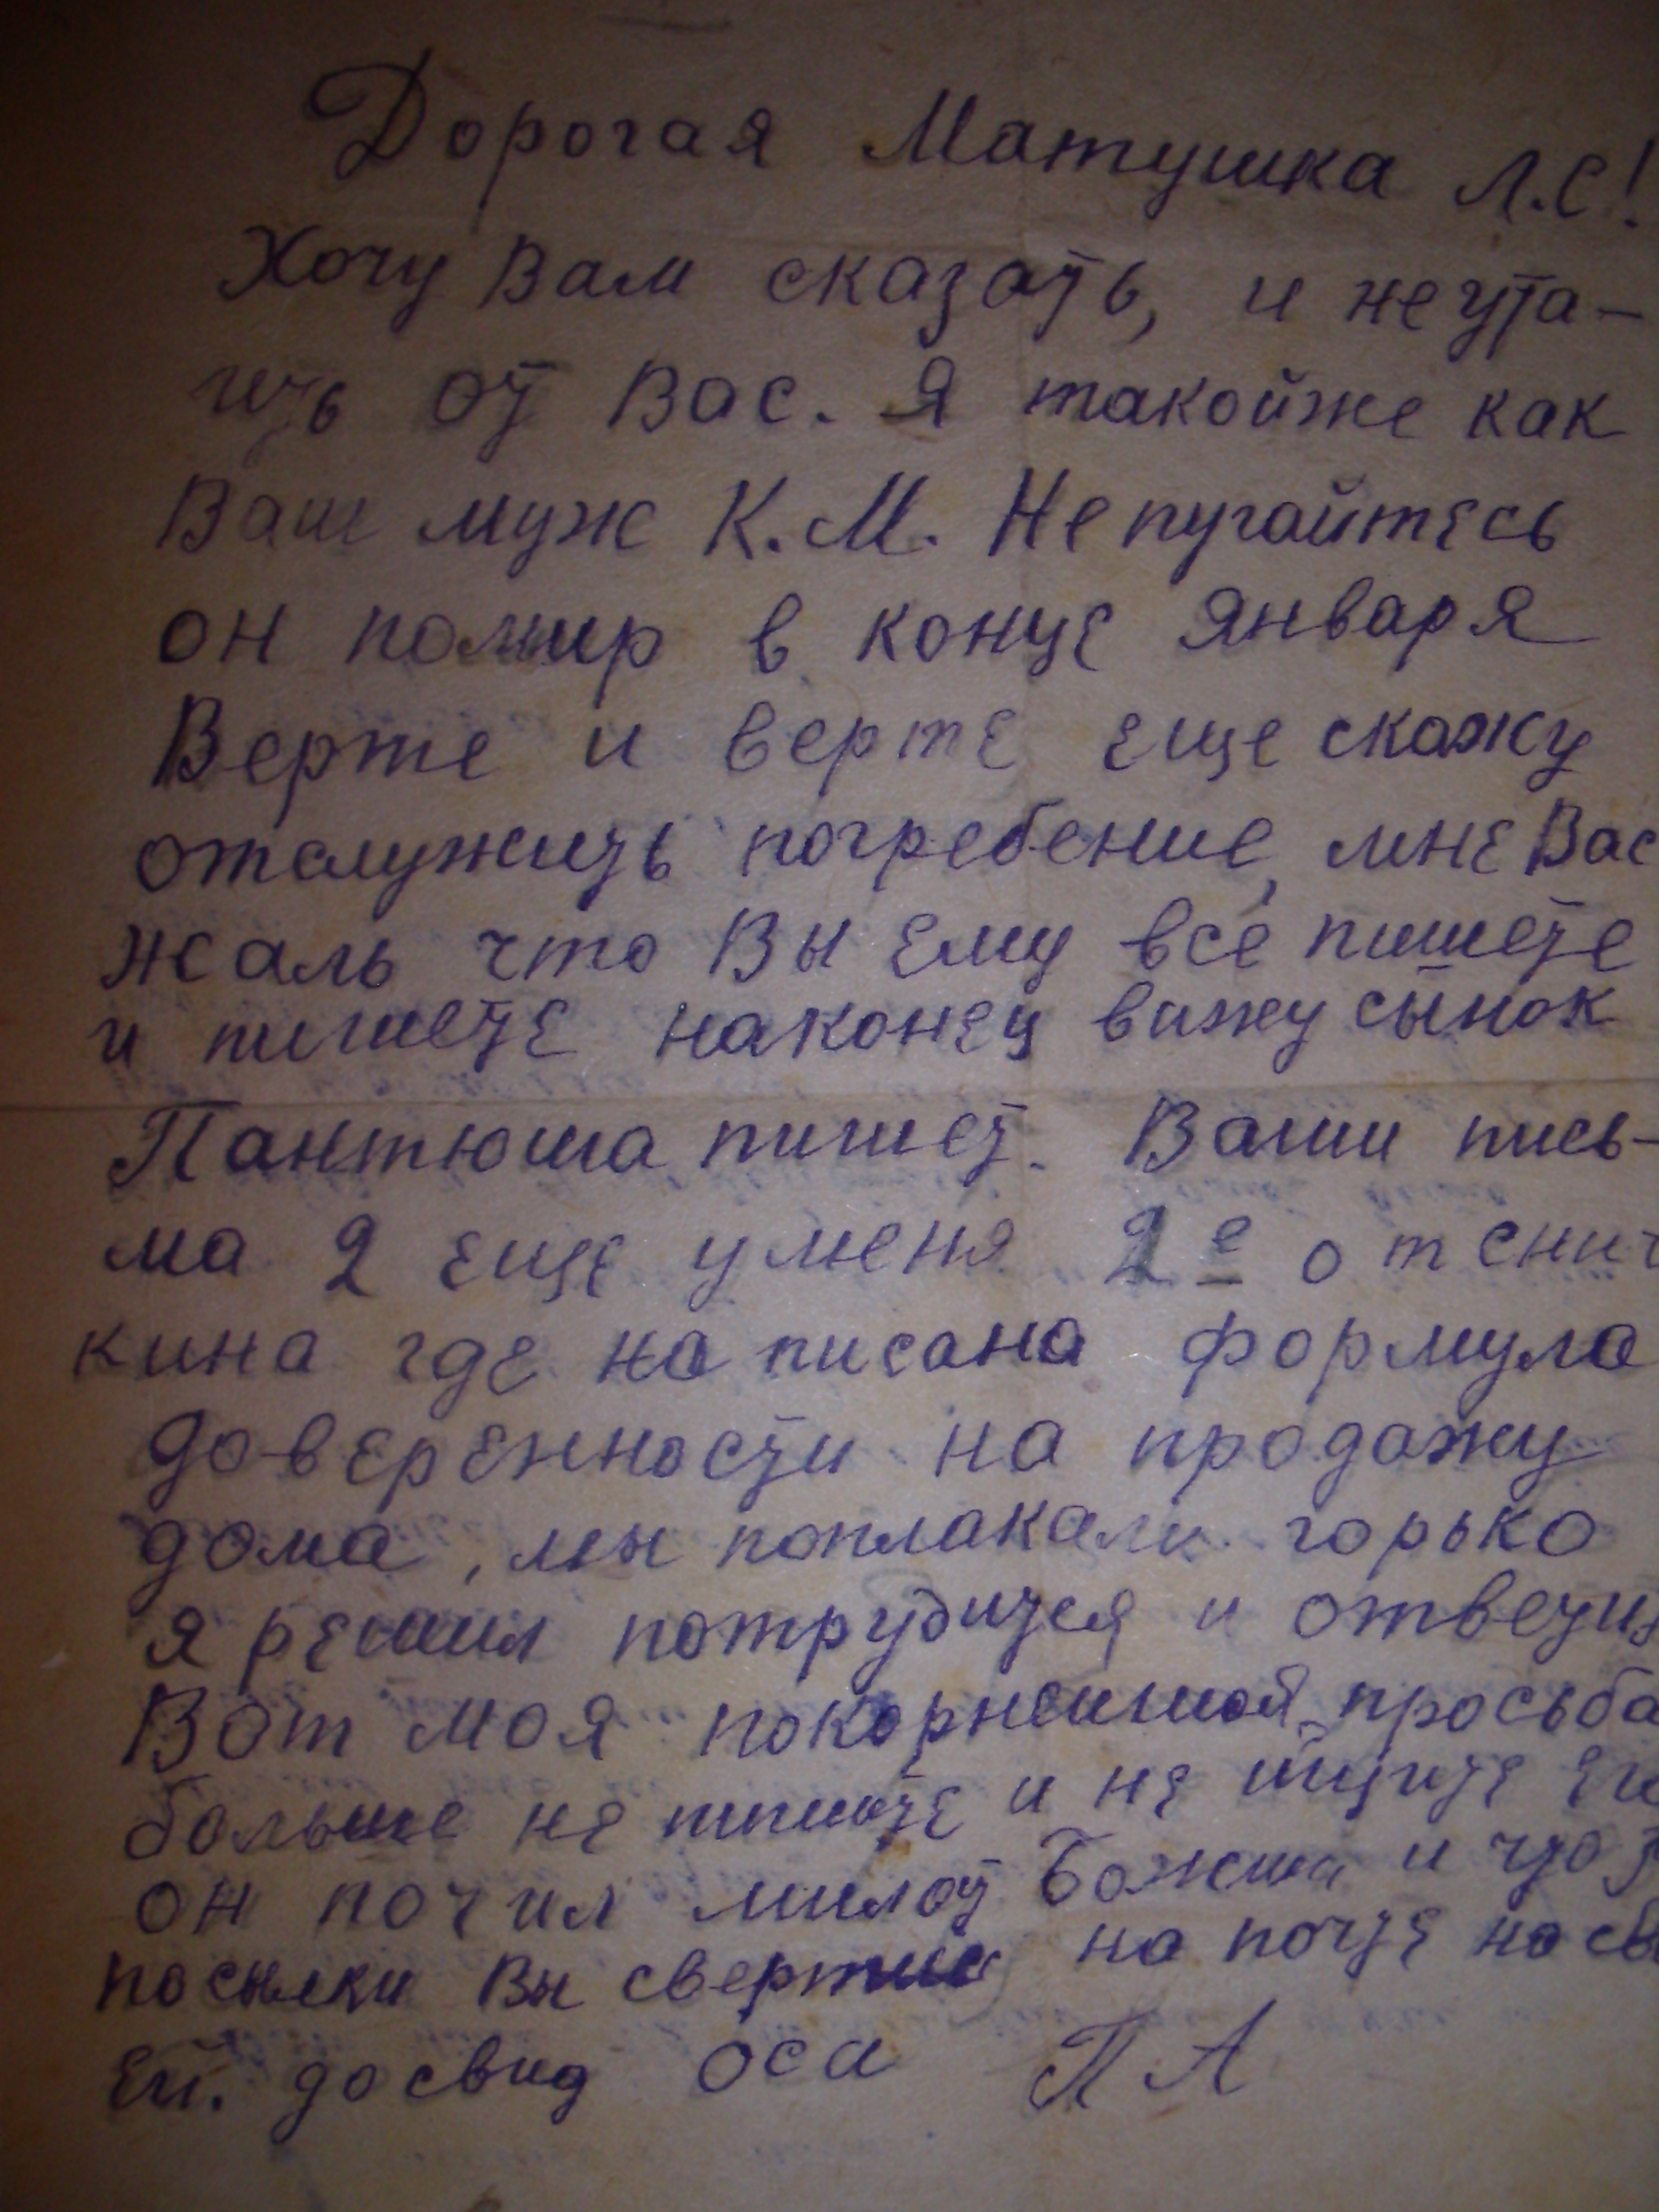 Дорогая Матушка Л.С!
Хочу Вам сказать, и не ута-
ить от Вас. Я такойже как
Ваш муж К.М. Не пугайтесь
он помир в конце января
Верте и верте еще скажу
отслужить погребение, мне Вас
жаль что Вы ему все пишете
и пишете наконец вижу сынок
Пантюша пишет. Ваши пись-
ма 2 еще у меня 2е от
кина где написана формула
доверенности на продажу
дома, мы поплакали горько
я решил потрудится и
Вот моя покорнейшая просьба
больше не пишите и не ищите
он почил милот Божии и
посылки Вы на почте
досвид П А